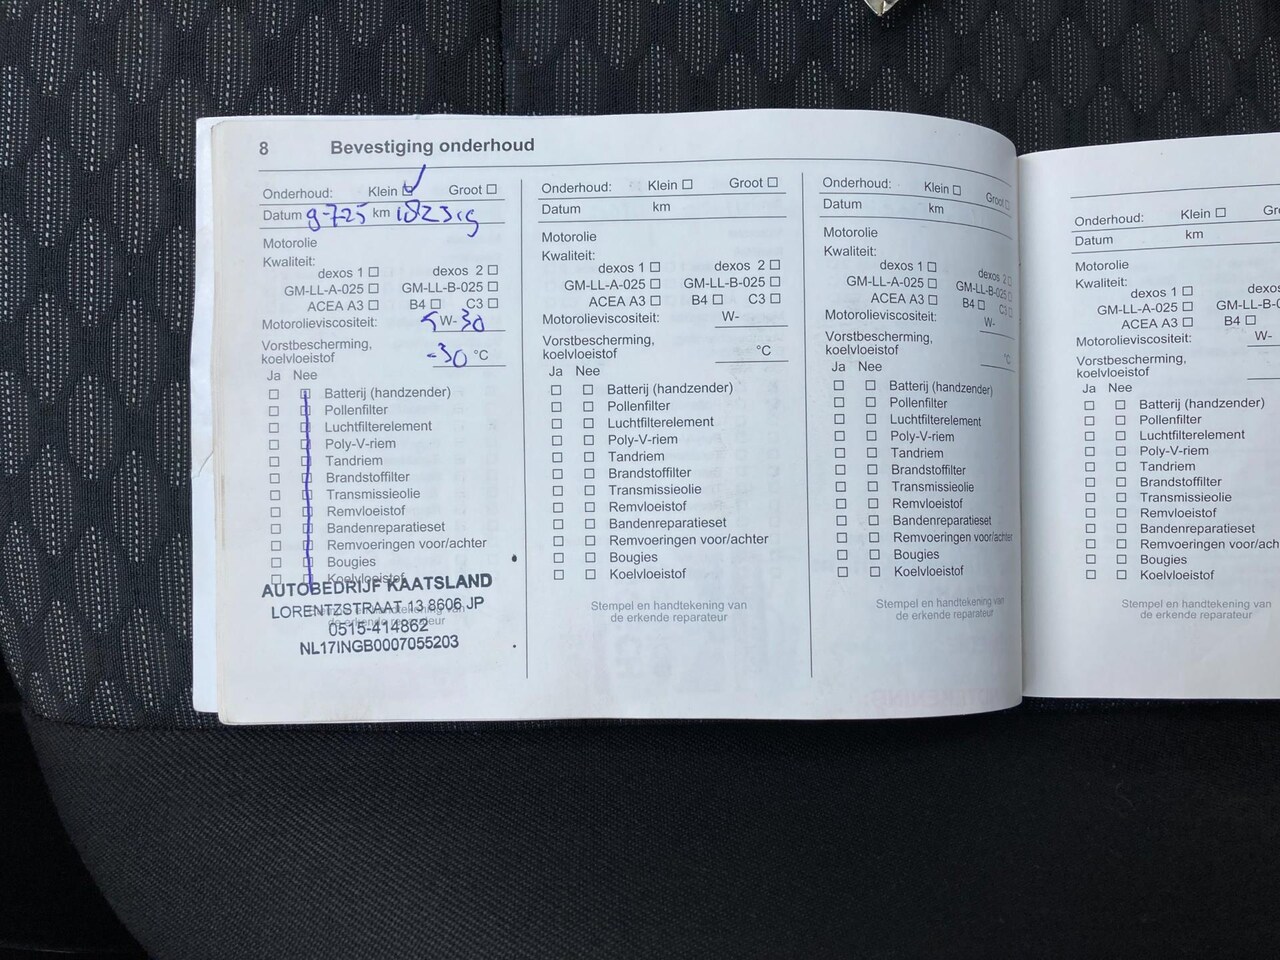 8 Bevestiging onderhoud
Onderhoud: Klein Groot
Datum 9-7-25 km
Motorolie
Kwaliteit:
dexos 1 dexos 2
GM-LL-A-025 GM-LL-B-025
ACEA A3 B4 C3
Motorolieviscositeit: 5 W- 30
Vorstbescherming,
koelvloeistof -30 °C
Ja Nee
Batterij (handzender)
Pollenfilter
Luchtfilterelement
Poly-V-riem
Tandriem
Brandstoffilter
Transmissieolie
Remvloeistof
Bandenreparatieset
Remvoeringen voor/achter
Bougies
Koelvloeistof
AUTOBEDRIJF KAATSLAND
LORENTZSTRAAT 13 8606 JP
0515-414862
NL17INGB0007055203
Onderhoud: Klein Groot
Datum km
Motorolie
Kwaliteit:
dexos 1 dexos 2
GM-LL-A-025 GM-LL-B-025
ACEA A3 B4 C3
Motorolieviscositeit: W-
Vorstbescherming,
koelvloeistof °C
Ja Nee
Batterij (handzender)
Pollenfilter
Luchtfilterelement
Poly-V-riem
Tandriem
Brandstoffilter
Transmissieolie
Remvloeistof
Bandenreparatieset
Remvoeringen voor/achter
Bougies
Koelvloeistof
Stempel en handtekening van
de erkende reparateur
Onderhoud: Klein Groot
Datum km
Motorolie
Kwaliteit:
dexos 1 dexos 2
GM-LL-A-025 GM-LL-B-025
ACEA A3 B4 C3
Motorolieviscositeit: W-
Vorstbescherming,
koelvloeistof °C
Ja Nee
Batterij (handzender)
Pollenfilter
Luchtfilterelement
Poly-V-riem
Tandriem
Brandstoffilter
Transmissieolie
Remvloeistof
Bandenreparatieset
Remvoeringen voor/achter
Bougies
Koelvloeistof
Stempel en handtekening van
de erkende reparateur
Onderhoud: Klein
Datum km
Motorolie
Kwaliteit:
dexos 1 dexos
GM-LL-A-025 GM-LL-B-0
ACEA A3 B4
Motorolieviscositeit: W-
Vorstbescherming,
koelvloeistof
Ja Nee
Batterij (handzender)
Pollenfilter
Luchtfilterelement
Poly-V-riem
Tandriem
Brandstoffilter
Transmissieolie
Remvloeistof
Bandenreparatieset
Remvoeringen voor/ach
Bougies
Koelvloeistof
Stempel en handtekening
de erkende reparateur